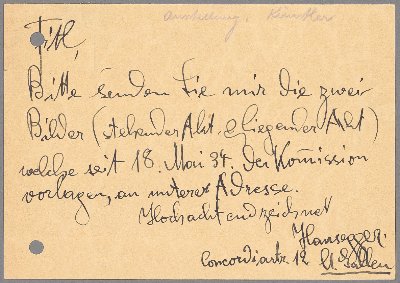 Ausstellung, Künstler
Titl,
Bitte senden Sie mir die zwei
Bilder (stehender Akt. & liegender Akt)
welche seit 18. Mai 34. der Komission
vorlagen, an unterer Adresse.
Hochachtend zeichnet
Hansegger.
Concordiastr. 12 St. Gallen